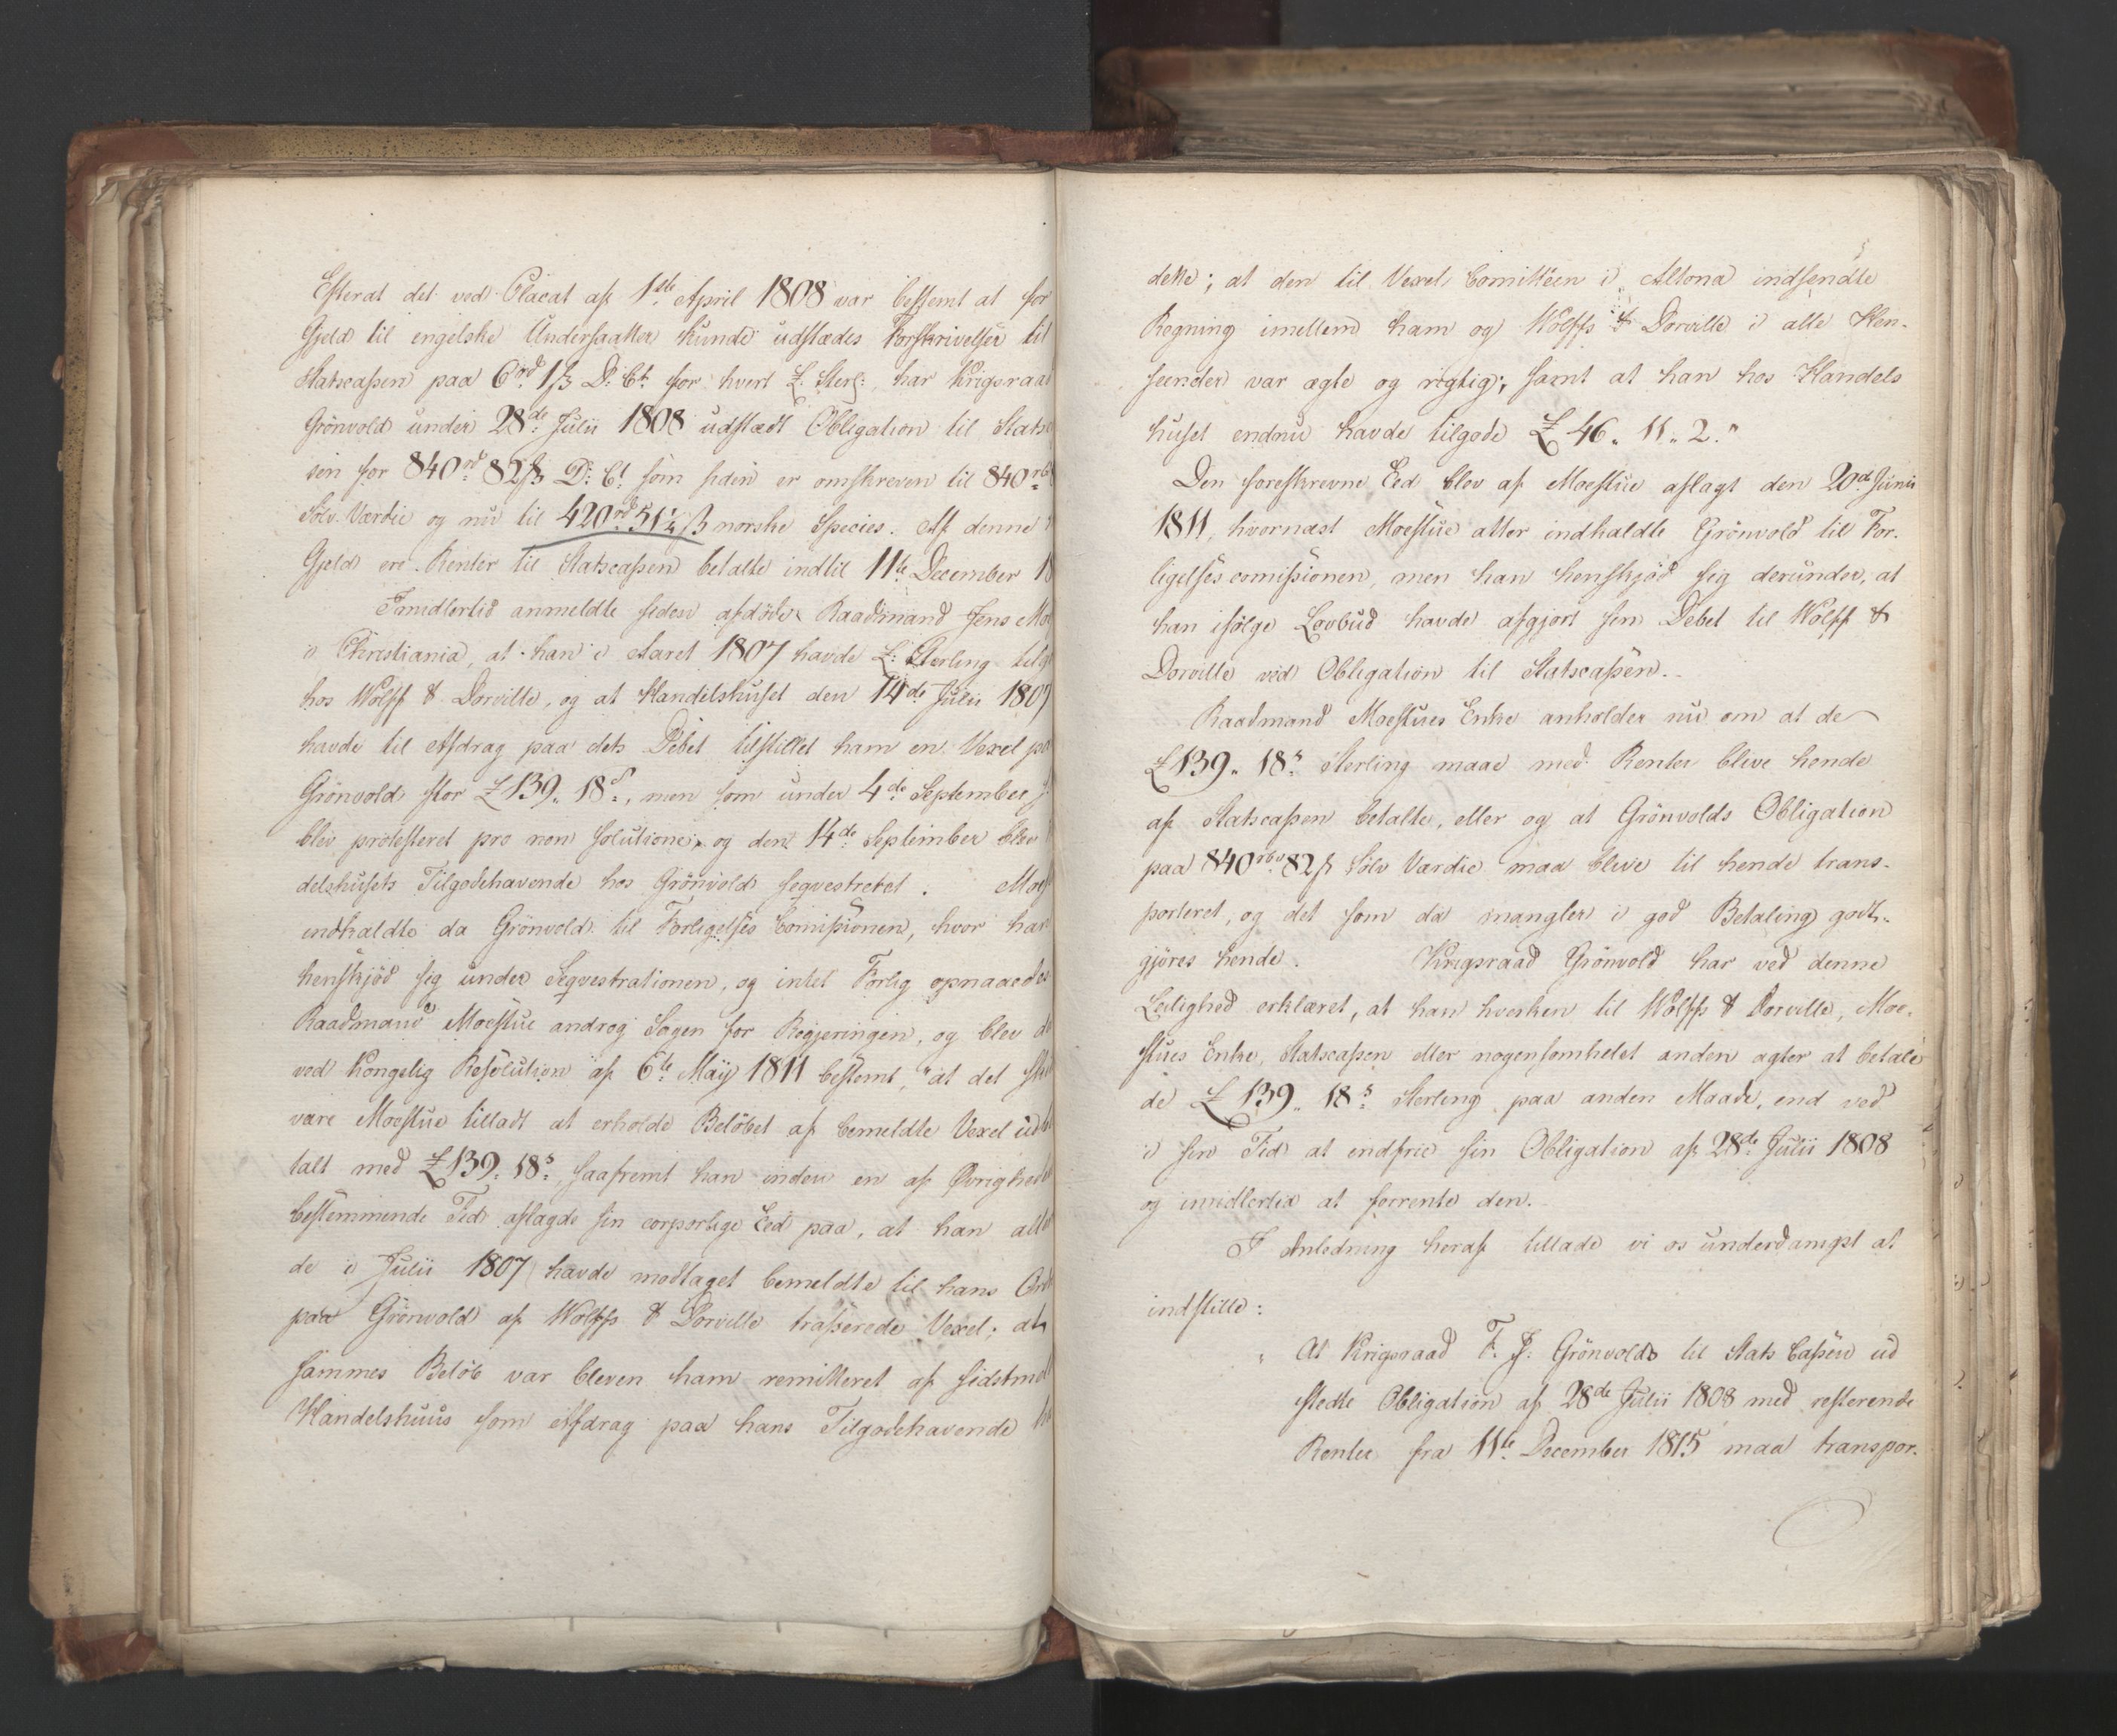 Efterat det ved Placat af 1ste April 1808 var bestemt at for
Gjeld til engelske Undersaatter kunde udstædes Forskrivelser til
Statscassen paa 6rd 1ß D: Ct for hvert £: Sterl:, har Krigsraad
Grönvold under 28de Julii 1808 udstædt Obligation til Statsc
sen for 840rd 82ß D: Ct som siden er omskreven til 840rb
Sölv Værdie og nu til 420rd 51¼ß norske Species. Af denne
Gjeld ere Renter til Statscassen betalte indtil 11te December 18
Imidlertid anmeldte siden afdöde Raadmand Jens Moe
i Christiania, at han i Aaret 1807 havde £: Sterling tilgo
hos Wolff & Dorville, og at Handelshuset den 14de Julii 1807
havde til Afdrag paa dets Debet tilstillet ham en Vexel pa
Grönvold stor £139. 18s, men som under 4de September
blev protesteret pro non solutione, og den 14de September blev
delshusets Tilgodehavende hos Grönvold seqvestreret. Moest
indkaldte da Grönvold til Forligelses Comissionen, hvor han
henskjöd sig under Seqvestrationen, og intet Forlig opnaaedes
Raadmand Moestue androg Sagen for Regjeringen, og blev de
ved Kongelig Resolution af 6te Maij 1811 bestemt, "at det sku
være Moestue tilladt at erholde Belöbet af bemeldte Vexel udbe
talt med £139. 18s, saafremt han inden en af Övrighed
bestemmende Tid aflagde sin corporlige Eed paa, at han alle
de i Julii 1807 havde modtaget bemeldte til hans Ord
paa Grönvold af Wolffs & Dorville trasserede Vexel; at
sammes Belöb var bleven ham remitteret af sidstmel
Handelshuus som Afdrag paa hans Tilgodehavende ho
dette; at den til Vexel Comitteen i Altona indsendte
Regning imellem ham og Wolffs & Dorville i alle Hen-
seender var ægte og rigtig; samt at han hos Handels
huset endnu havde tilgode £ 46. 11. 2."
Den foreskrevne Eed blev af Moestue aflagt den 20de Junii
1811, hvornæst Moestue atter indkaldte Grönvold til For-
ligelsescomissionen, men han henskjöd sig derunder, at
han ifölge Lovbud havde afgjort sin Debet til Wolff &
Dorville ved Obligation til Statscassen.
Raadmand Moestues Enke anholder nu om at de
£139. 18s Sterling maae med Renter blive hende
af Statscassen betalte, eller og at Grönvolds Obligation
paa 840rbd 82ß Sölv Værdie maa blive til hende trans-
porteret, og det som da mangler i god Betaling godt-
gjöres hende. Krigsraad Grönvold har ved denne
Leilighed erklæret, at han hverken til Wolffs & Dorville, Moe-
stues Enke, Statscassen eller nogensomhelst anden agter at betale
de £139. 18s Sterling paa anden Maade, end ved
i sin Tid at indfrie sin Obligation af 28de Julii 1808
og imidlertid at forrente den.
I Anledning heraf tillade vi os underdanigst at
indstille:
At Krigsraad F. J: Grönvolds til Stats Cassen ud
stedte Obligation af 28de Julii 1808 med resterende
Renter fra 11te December 1815 maa transpor-